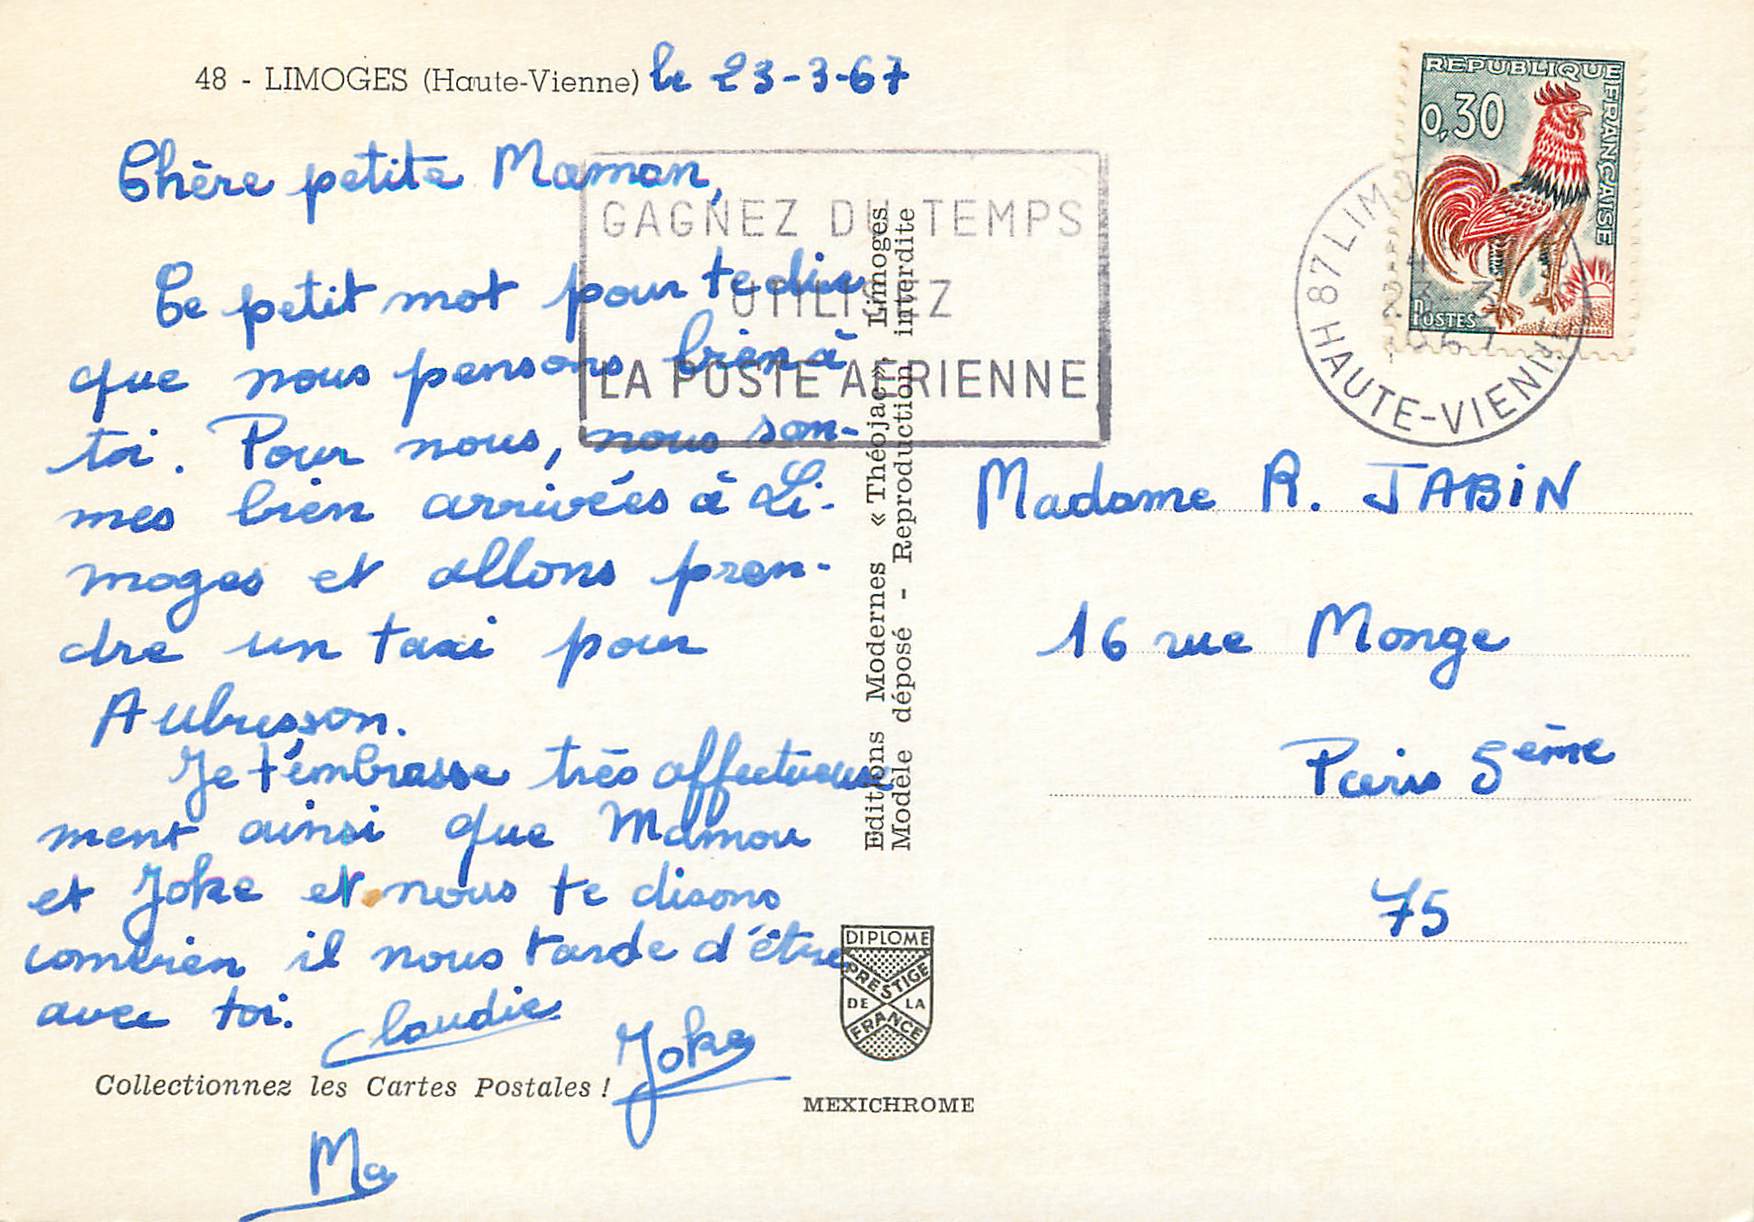 48 - LIMOGES (Haute-Vienne) le 23-3-67
Chère petite Maman,
Ce petit mot pour te dire
que nous pensons bien à
toi. Pour nous, nous som-
mes bien arrivées à Li-
moges et allons pren-
dre un taxi pour
Aubusson.
Je t'embrasse très affectueuse
ment ainsi que Mamou
et Joke et nous te disons
combien il nous tarde d'être
avec toi.
Claudie
Joke
Ma
Collectionnez les Cartes Postales !
GAGNEZ DU TEMPS
UTILISEZ
LA POSTE AERIENNE
Editions Modernes « Théojac » Limoges
Modèle déposé - Reproduction interdite
DIPLOME
PRESTIGE
DE LA
FRANCE
MEXICHROME
REPUBLIQUE FRANÇAISE
0,30
POSTES
87 LIMOGES
23-3
1967
HAUTE-VIENNE
Madame R. JABIN
16 rue Monge
Paris 5ème
75